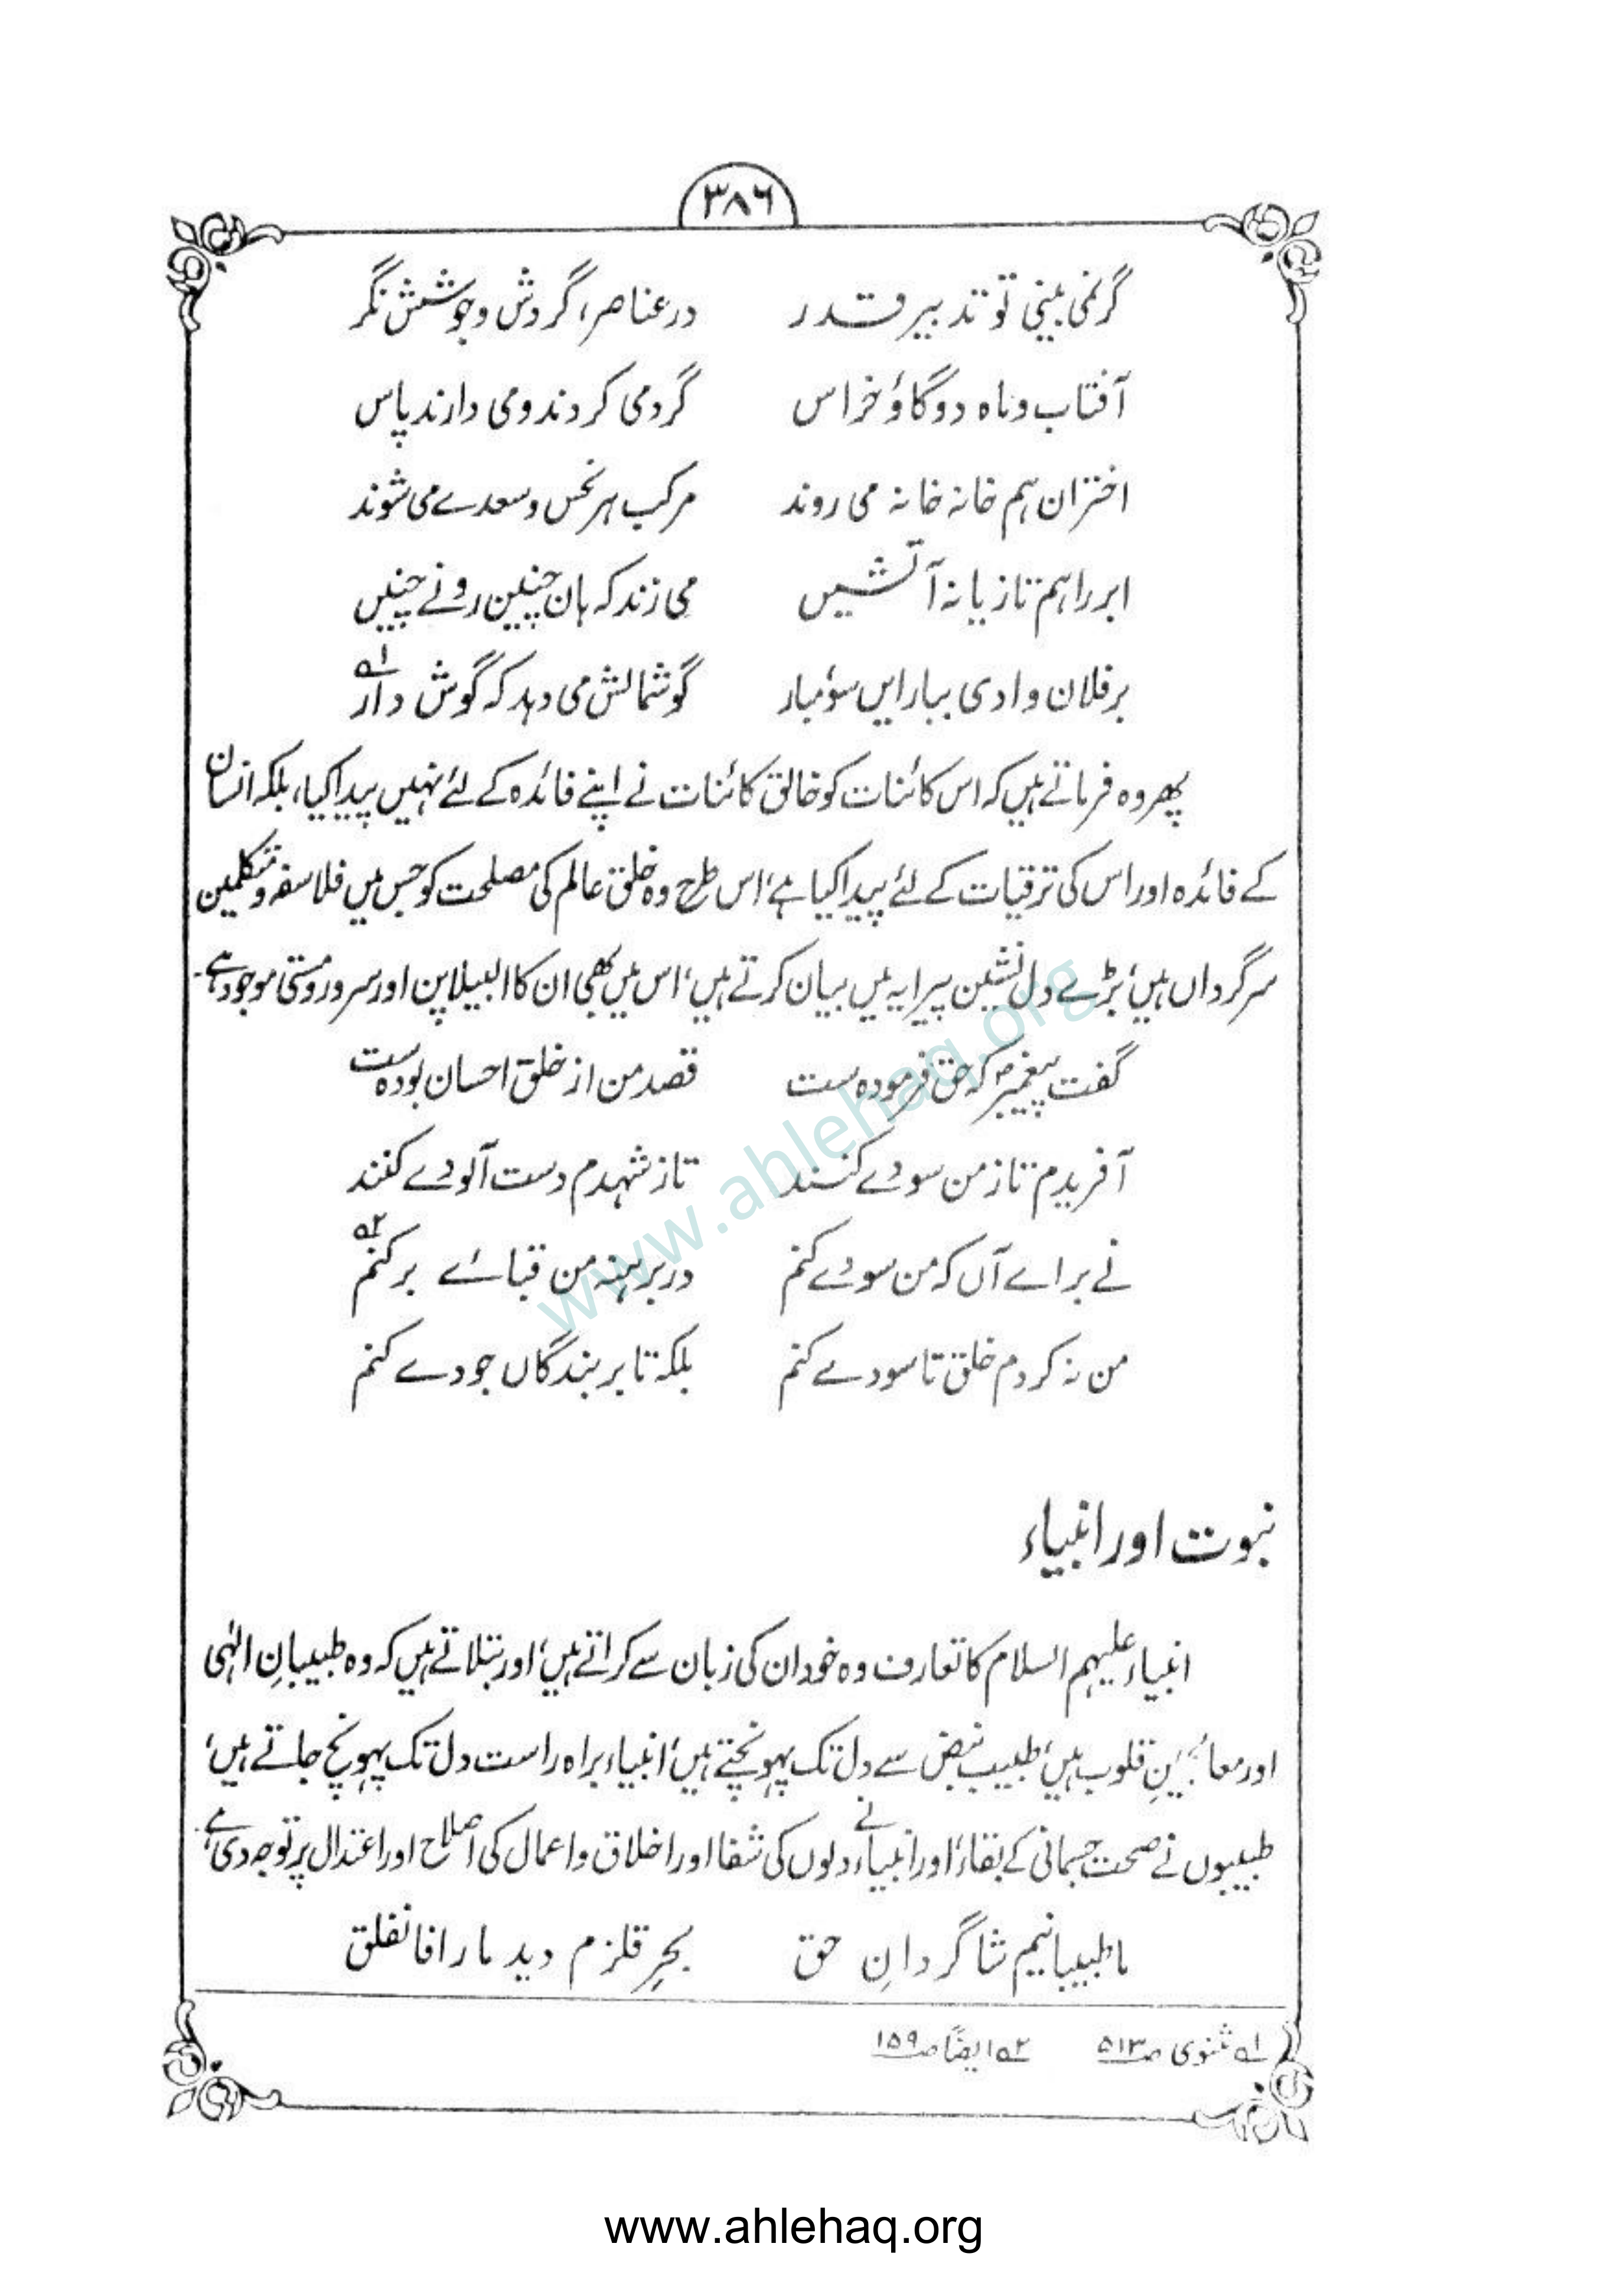 ۳۸۶
گر نمی بینی تو تدبیر قدر در عناصر، گردش و جوشش نگر
آفتاب و ماه دو گاؤ خراس گرد می کردند و می دارند پاس
اختران ہم خانہ خانہ می روند مرکب ہر نحس و سعدے می شوند
ابر را ہم تازیانہ آتشیں می زند کہ ہاں چنیں رو نے چنیں
بر فلان وادی ببار ایں سوٗ مبار گوشمالش می دہد کہ گوش دار ۱ه
پھر وہ فرماتے ہیں کہ اس کائنات کو خالق کائنات نے اپنے فائدہ کے لئے نہیں پیدا کیا، بلکہ انسان
کے فائدہ اور اس کی ترقیات کے لئے پیدا کیا ہے، اس طرح وہ خلق عالم کی مصلحت کو جس میں فلاسفہ و متکلمین
سرگرداں ہیں، بڑے دل نشین پیرایہ میں بیان کرتے ہیں، اس میں بھی ان کا البیلا پن اور سرور و مستی موجود ہے۔
گفت پیغمبرؐ کہ حق فرمودہ ست قصد من از خلق احسان بودہ ست
آفریدم تا ز من سودے کنند تا ز شہدم دست آلودے کنند
نے براے آں کہ من سودے کنم در برہنہ من قبائے بر کنم ۲ه
من نہ کردم خلق تا سودے کنم بلکہ تا بر بندگاں جودے کنم
نبوت اور انبیاء
انبیاء علیہم السلام کا تعارف وہ خود ان کی زبان سے کراتے ہیں، اور بتلاتے ہیں کہ وہ طبیبانِ الٰہی
اور معالجینِ قلوب ہیں، طبیب نبض سے دل تک پہونچتے ہیں، انبیاء براہ راست دل تک پہونچ جاتے ہیں،
طبیبوں نے صحت جسمانی کے بقاء، اور انبیاء نے دلوں کی شفا اور اخلاق و اعمال کی اصلاح اور اعتدال پر توجہ دی ہے۔
ما طبیبانیم شاگردانِ حق بحرِ قلزم دید ما را فانفلق
۱ه مثنوی ص۵۱۳ ۲ه ایضاً ص۱۵۹
www.ahlehaq.org
www.ahlehaq.org